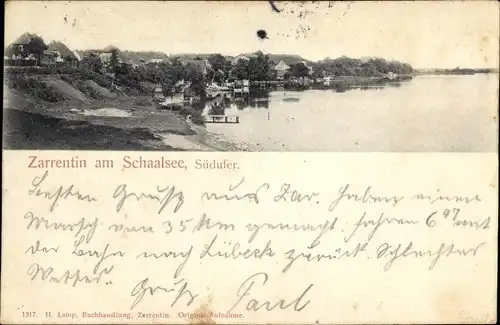 Zarrentin am Schaalsee, Südufer.
Besten Gruß aus Zar. Haben einen
Marsch von 35 km gemacht. Fahren 6 47 mit
der Bahn nach Lübeck zurück. Schlechtes
Wetter. Gruß Paul
1317. H. Lamp, Buchhandlung, Zarrentin. Original-Aufnahme.